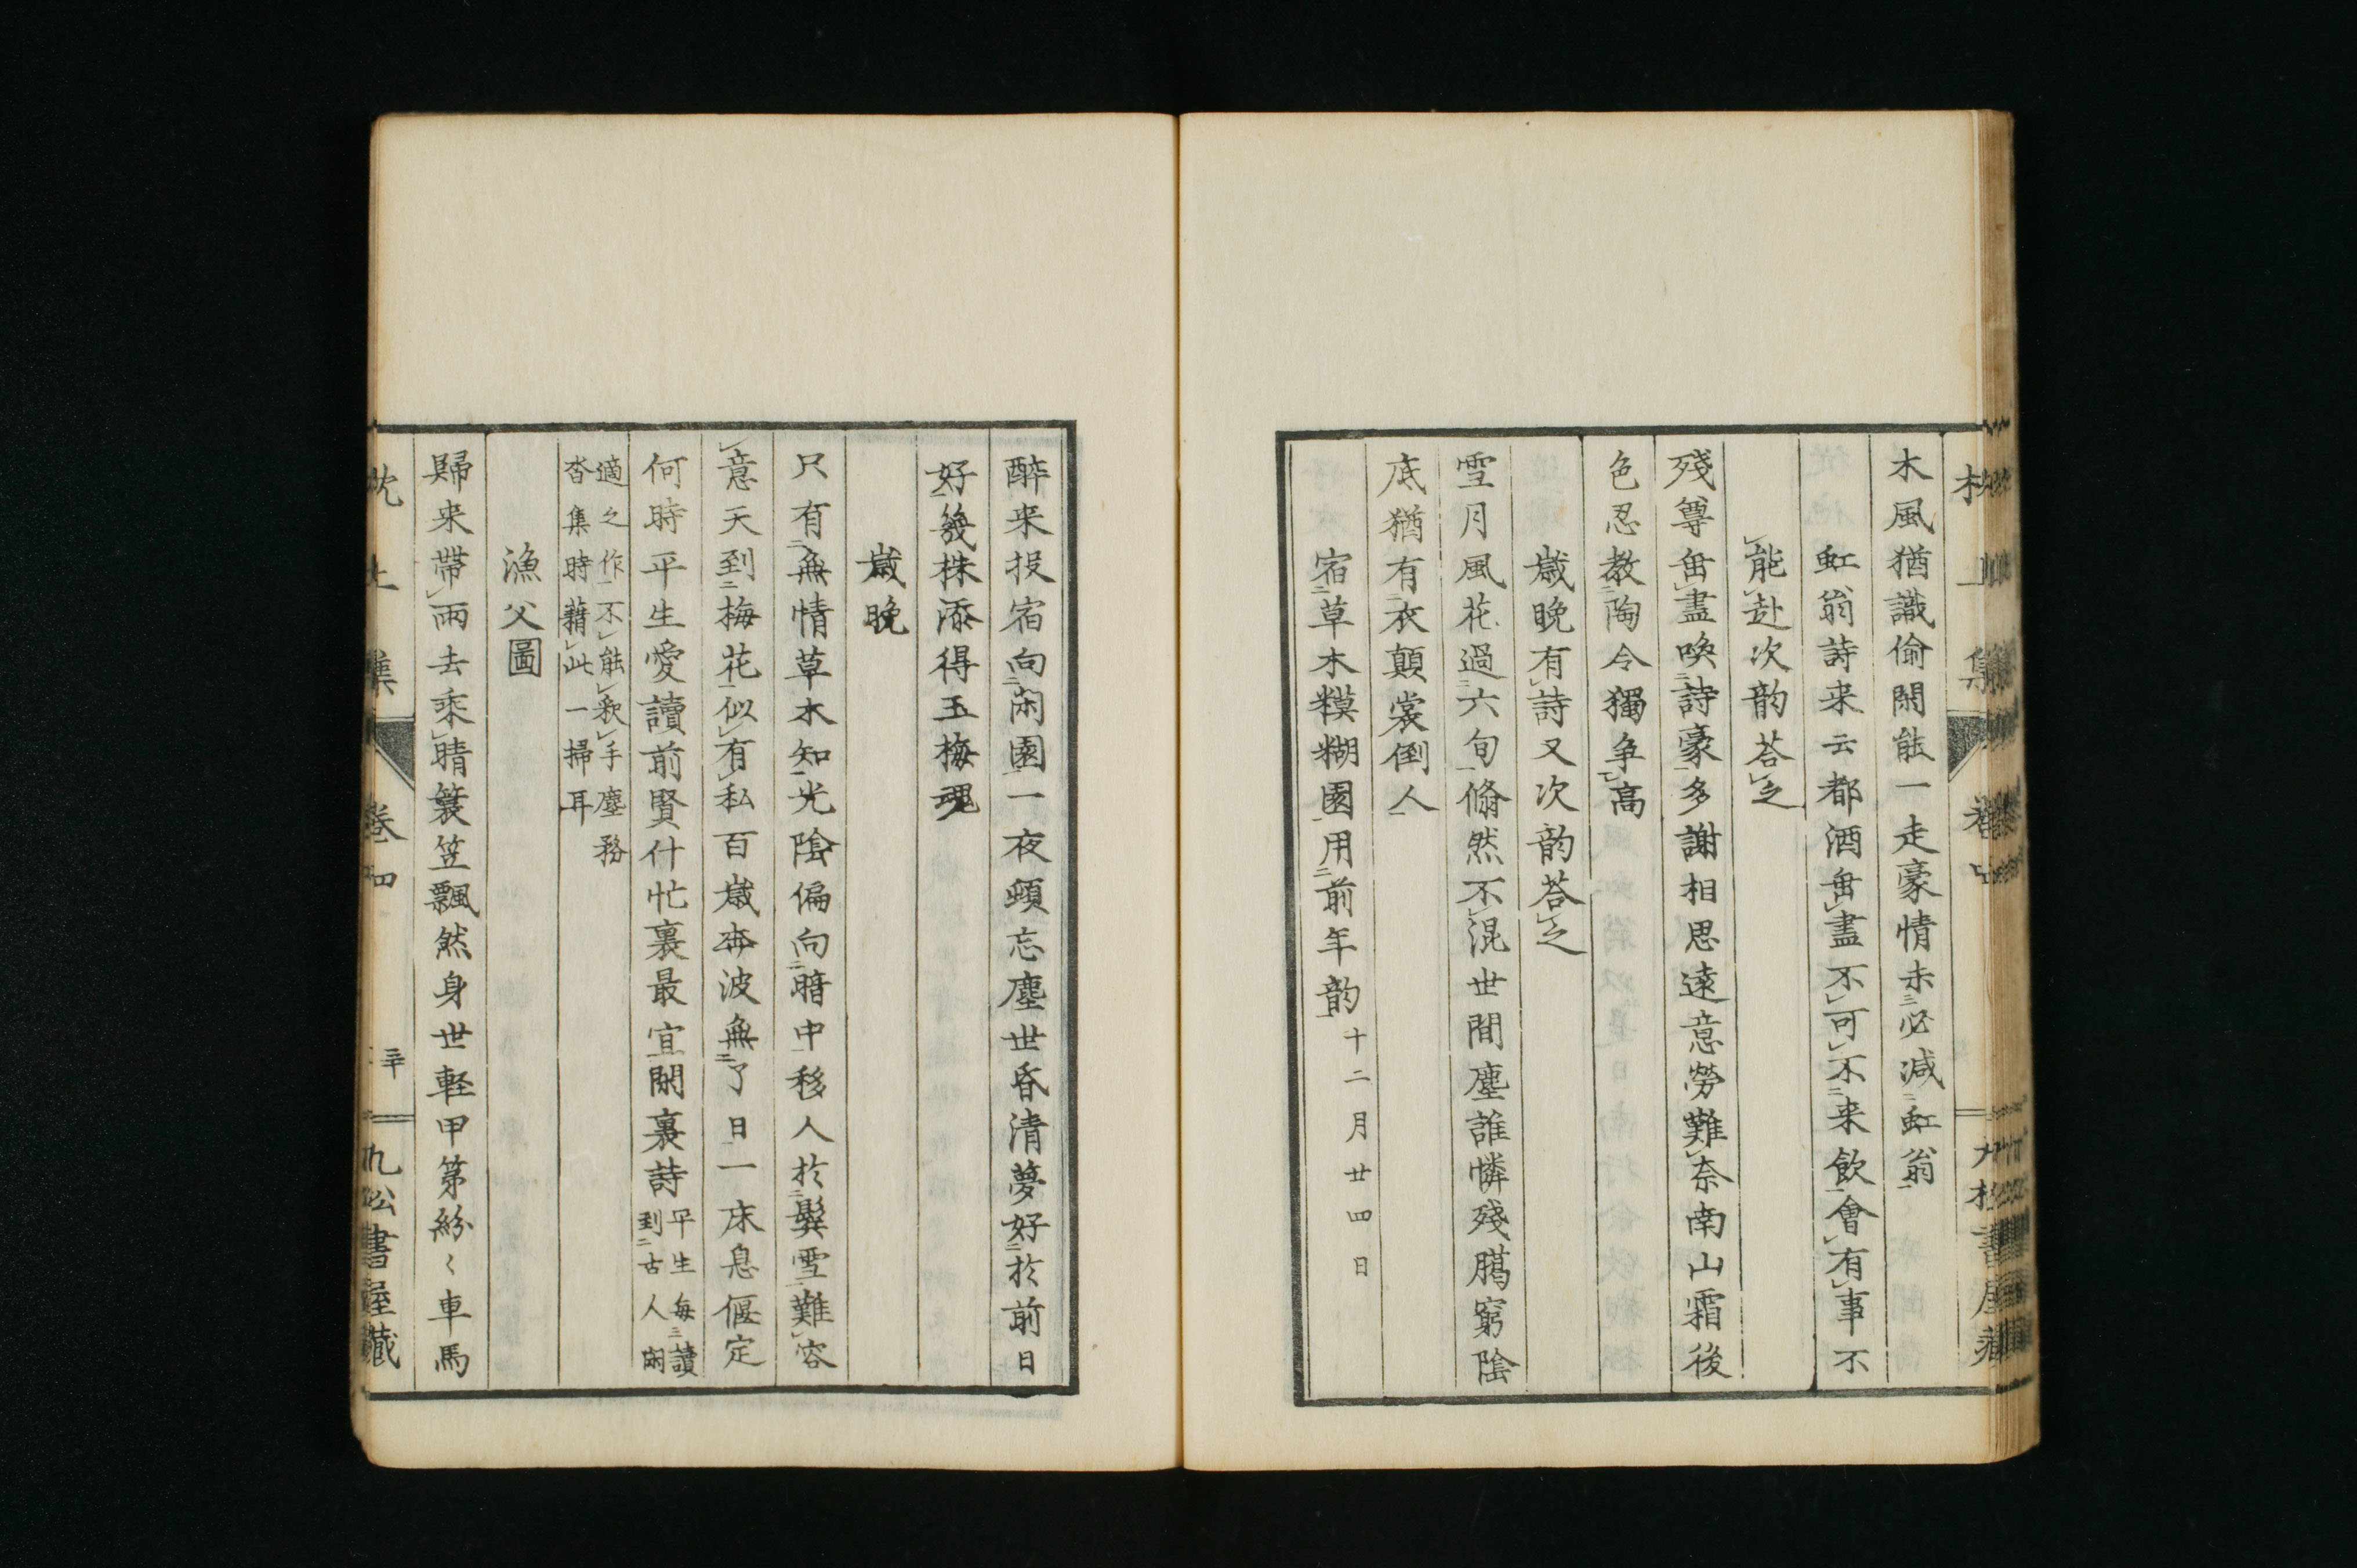 木風猶識偷閑能一走豪情未必減虹翁
虹翁詩来云都酒缶盡不可不来飲會有事不
能赴次韵荅之
殘尊缶盡喚詩豪多謝相思遠意勞難奈南山霜後
色忍教陶令獨争高
歳晩有詩又次韵荅之
雪月風花過六旬翛然不混世間塵誰憐殘臈窮陰
底猶有衣顛裳倒人
宿草木糢糊園用前年韵十二月廿四日
醉来投宿向閑園一夜頓忘塵世昏清夢好於前日
好幾株添得玉梅魂
歳晩
只有無情草木知光陰偏向暗中移人於鬢雪難容
意天到梅花似有私百歳奔波無了日一床息偃定
何時平生愛讀前賢什忙裏最宜閑裏詩平生毎讀
到古人閑
適之作不能釈手塵務
沓集時藉此一掃耳
漁父圖
歸来帶雨去乘晴簑笠飄然身世軽甲第紛〻車馬
枕上集 卷四 三十 九松書屋藏